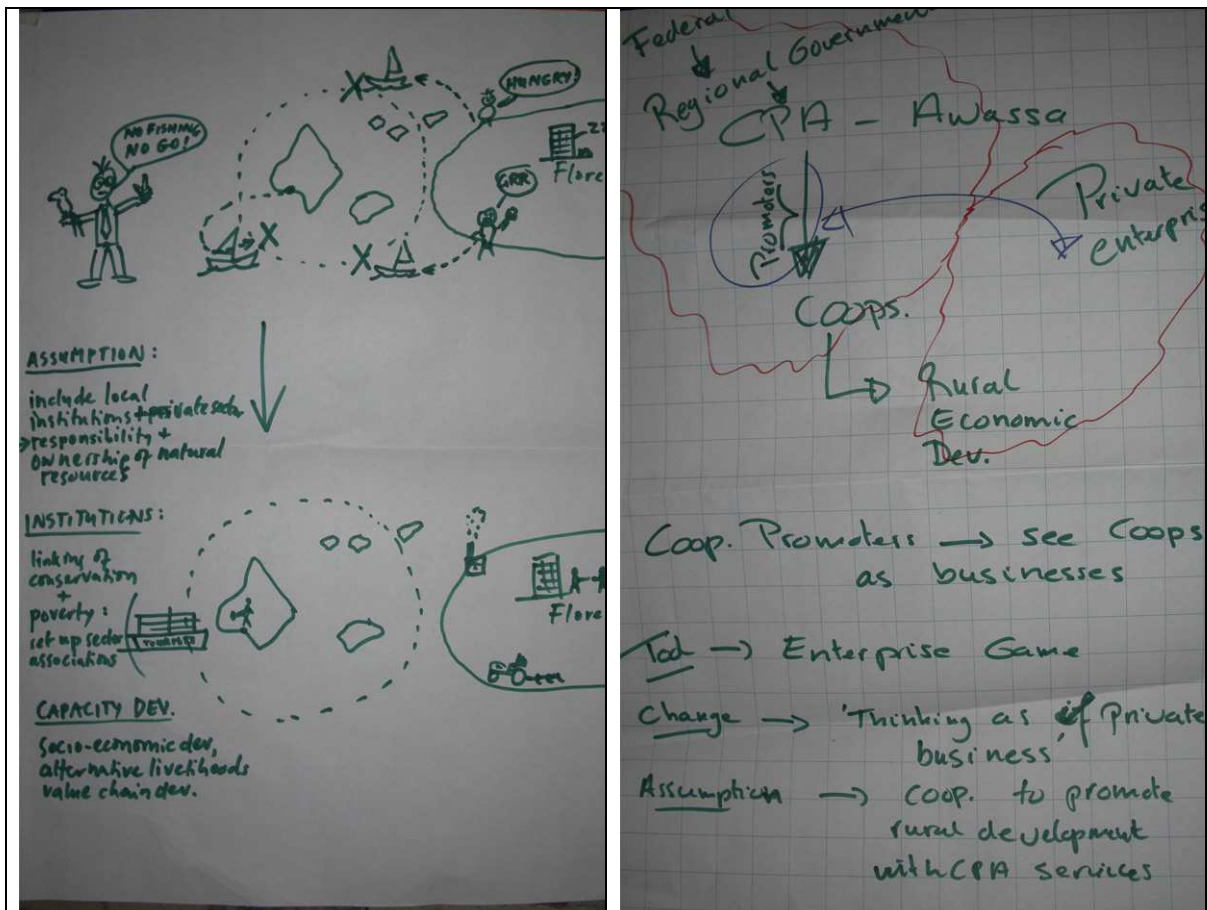 NO FISHING
NO GO!
HUNGRY!
GRR
Flore
ASSUMPTION:
include local
institutions + private sector
→ responsibility +
ownership of natural
resources
INSTITUTIONS:
linking of
conservation
+
poverty:
set up sector
associations
Flore
CAPACITY DEV.
Socio-economic dev,
alternative livelihoods
value chain dev.
Federal
Regional Governmen
CPA - Awassa
Promoters
Private
enterpris
Coops.
Rural
Economic
Dev.
Coop. Promoters → see Coops
as businesses
Tool → Enterprise Game
Change → 'Thinking as if private
business'
Assumption → coop. to promote
rural development
with CPA services